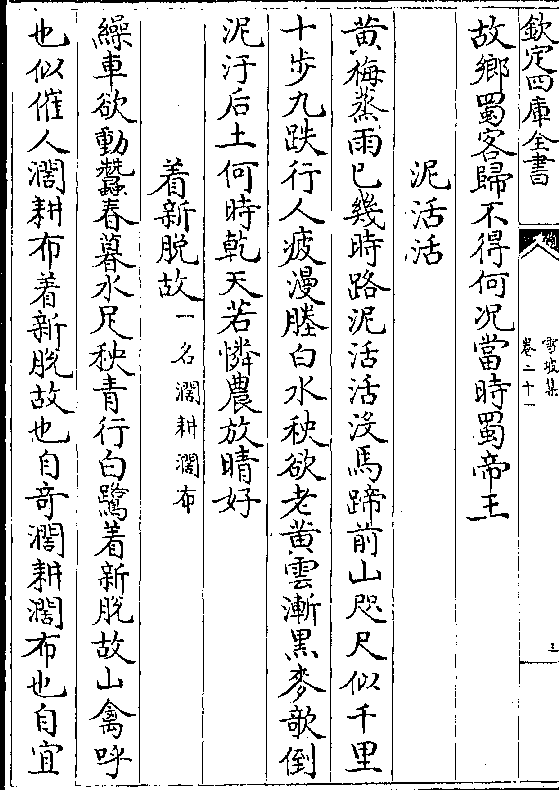 欽定四庫全書
雪坡集
卷二十一
故鄉蜀客歸不得何况當時蜀帝王
泥活活
黄梅蒸雨已幾時路泥活活没馬蹄前山咫尺似千里
十步九跌行人疲漫塍白水秧欲老黄雲漸黑麥欹倒
泥汙后土何時乾天若憐農放晴好
着新脱故一名濶耕濶布
繰車欲動蠶春暮水足秧青行白鷺着新脱故山禽呼
也似催人濶耕布着新脱故也自奇濶耕濶布也自宜